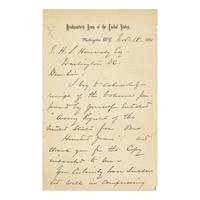 Headquarters Army of the United States,
Washington, D.C. Nov. 15,
T. H. S. Hamersly Esq.
Washington D.C.
Dear Sir:
I beg to acknowledge
receipt of the Volume pre-
pared by yourself entitled
"Army Register of the
United States for One
Hundred Years" and
thank you for the Copy
You Certainly have succeeded
well in compressing